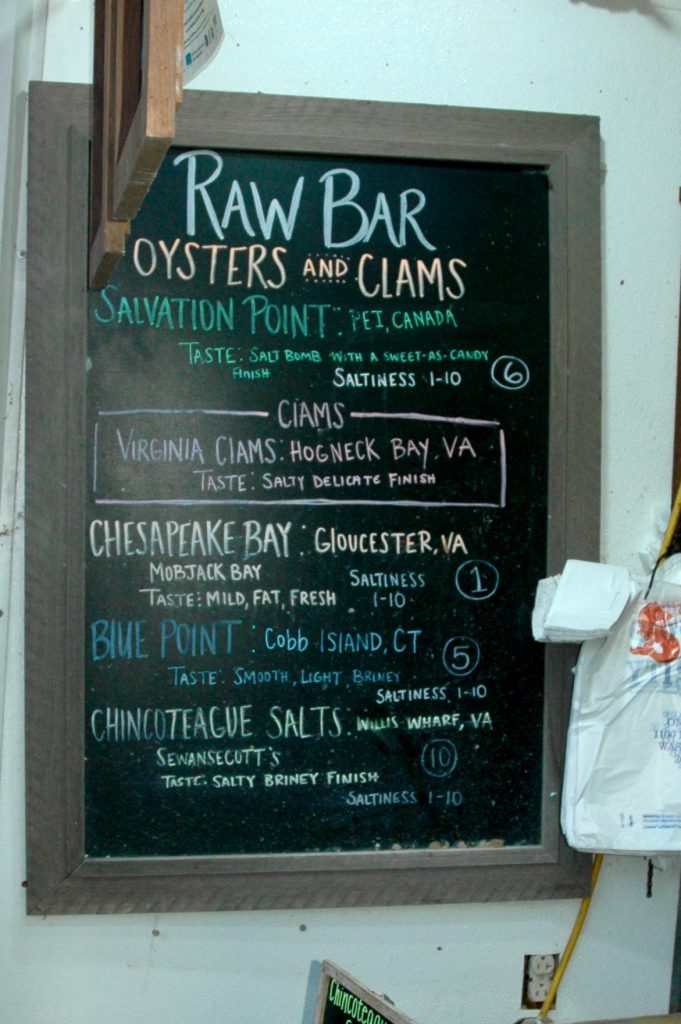 RAW BAR
OYSTERS AND CLAMS
SALVATION POINT: PEI, CANADA
TASTE: SALT BOMB WITH A SWEET-AS-CANDY
FINISH
SALTINESS 1-10 6
CLAMS
VIRGINIA CLAMS: HOGNECK BAY, VA
TASTE: SALTY DELICATE FINISH
CHESAPEAKE BAY: GLOUCESTER, VA
MOBJACK BAY SALTINESS 1
TASTE: MILD, FAT, FRESH 1-10
BLUE POINT: COBB ISLAND, CT
5
TASTE: SMOOTH, LIGHT BRINEY
SALTINESS 1-10
CHINCOTEAGUE SALTS: WILLIS WHARF, VA
SEWANSECOTT'S 10
TASTE: SALTY BRINEY FINISH
SALTINESS 1-10
Chincoteague